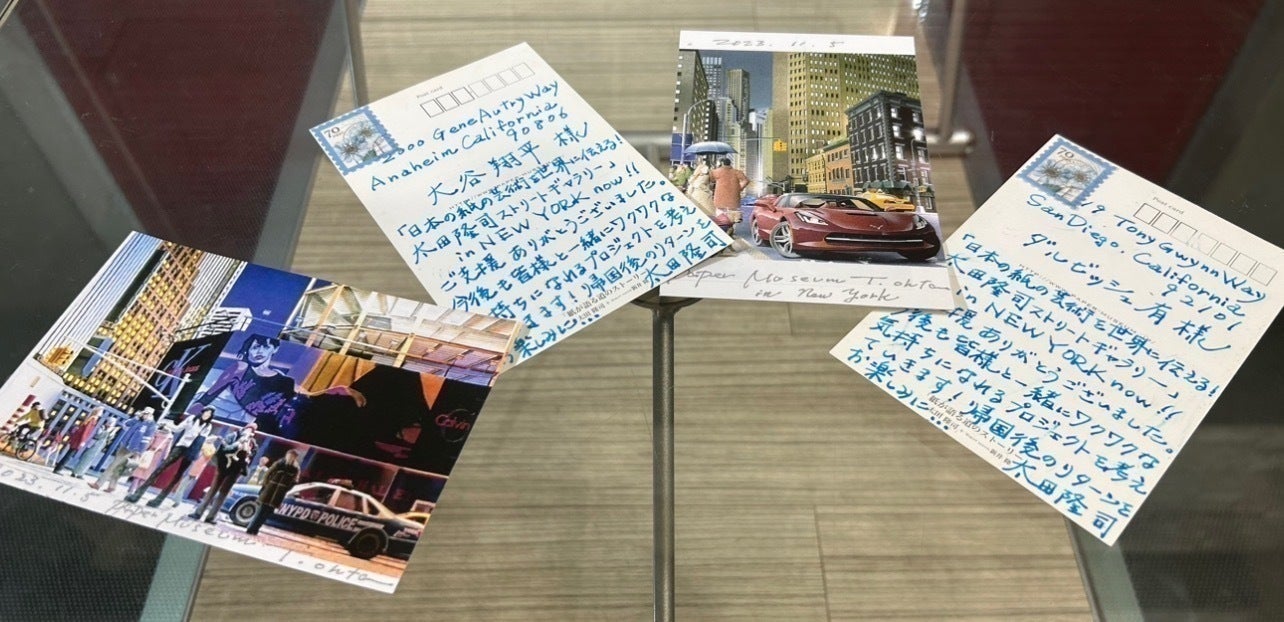 2023.11.5
Paper Museum T. ohta
in New York
Post card
70
2000 Gene Autry Way
Anaheim California
90806
大谷 翔平 様
「日本の紙の芸術を世界に伝える!
太田隆司ストリートギャラリー」
in NEW YORK now!!
ご支援ありがとうございました。
今後も皆様と一緒にワクワクな
気持ちになれるプロジェクトを考え
ます!帰国後のリターンを
楽しみに...
太田隆司
紙が語る道のストーリー
太田隆司
Post card
70
9 Tony Gwynn Way
San Diego, California
92101
ダルビッシュ有 様
「日本の紙の芸術を世界に伝える!
太田隆司ストリートギャラリー」
in NEW YORK now!!
援ありがとうございました。
後も皆様と一緒にワクワクな
気持ちになれるプロジェクトを考え
ていきます!帰国後のリターンを
お楽しみに...
太田隆司
紙が語る道のストーリー
太田隆司
Calvin
NYPD POLICE
2023.11.5
Paper Museum T. ohta